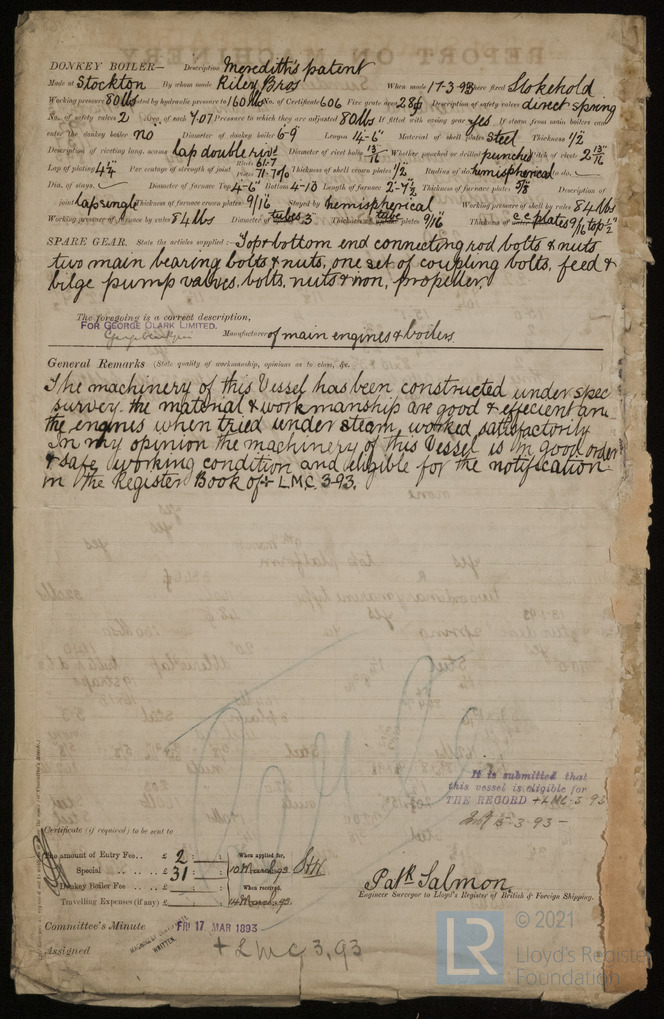 DONKEY BOILER— Description Meredith's patent
Made at Stockton By whom made Riley Bros When made 17·3·93 Where fixed Stokehold
Working pressure 80 lbs tested by hydraulic pressure to 160 lbs No. of Certificate 606 Fire grate area 28 Description of safety valves direct spring
No. of safety valves 2 Area of each 7·07 Pressure to which they are adjusted 80 lbs If fitted with easing gear yes If steam from main boilers can
enter the donkey boiler no Diameter of donkey boiler 6-9 Length 14-6" Material of shell plates steel Thickness 1/2
Description of riveting long. seams lap double rivd Diameter of rivet holes 13/16 Whether punched or drilled punched Pitch of rivets 2 13/16
Lap of plating 4 1/4 Per centage of strength of joint Rivets 61·7 Plates 71·7% Thickness of shell crown plates 1/2 Radius of do. hemispherical to do.
Dia. of stays. Diameter of furnace Top 4-6" Bottom 4-10 Length of furnace 2-7 1/2 Thickness of furnace plates Description of
joint lap single Thickness of furnace crown plates 9/16 Stayed by hemispherical Working pressure of shell by rules 84 lbs
Working pressure of furnace by rules 84 lbs Diameter of tubes 3 Thickness of tube plates 9/16 Thickness of c.c. plates 9/16 top 1/2"
SPARE GEAR. State the articles supplied:— Top & bottom end connecting rod bolts & nuts
two main bearing bolts & nuts, one set of coupling bolts, feed &
bilge pump valves, bolts, nuts & iron, propeller.
The foregoing is a correct description,
FOR GEORGE CLARK LIMITED.
Manufacturer of main engines & boilers.
General Remarks (State quality of workmanship, opinions as to class, &c.
The machinery of this Vessel has been constructed under spec
survey. the material & workmanship are good & effecient an
the engines when tried under steam, worked satisfactorily
In my opinion the machinery of this Vessel is in good order
& safe working condition and eligible for the notification
in the Register Book of + L.M.C. 3-93.
It is submitted that
this vessel is eligible for
THE RECORD + LMC·3·93
Certificate (if required) to be sent to
The amount of Entry Fee.. £ 2 : : When applied for,
Special .. £ 31 : : 10 March 93
Donkey Boiler Fee £ : : When received,
Travelling Expenses (if any) £ : : 14 March 93
Patk Salmon.
Engineer Surveyor to Lloyd's Register of British & Foreign Shipping.
Committee's Minute FRI 17 MAR 1893
MACHINERY CERTIFICATE
WRITTEN.
Assigned + L M C 3, 93
LR
© 2021
Lloyd's Register
Foundation